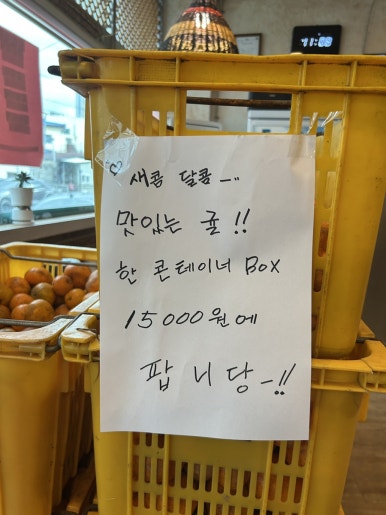 11:08
♡ 새콤 달콤 -..
맛있는 귤 !!
한 콘테이너 Box
15000원에
팝니당 -!!